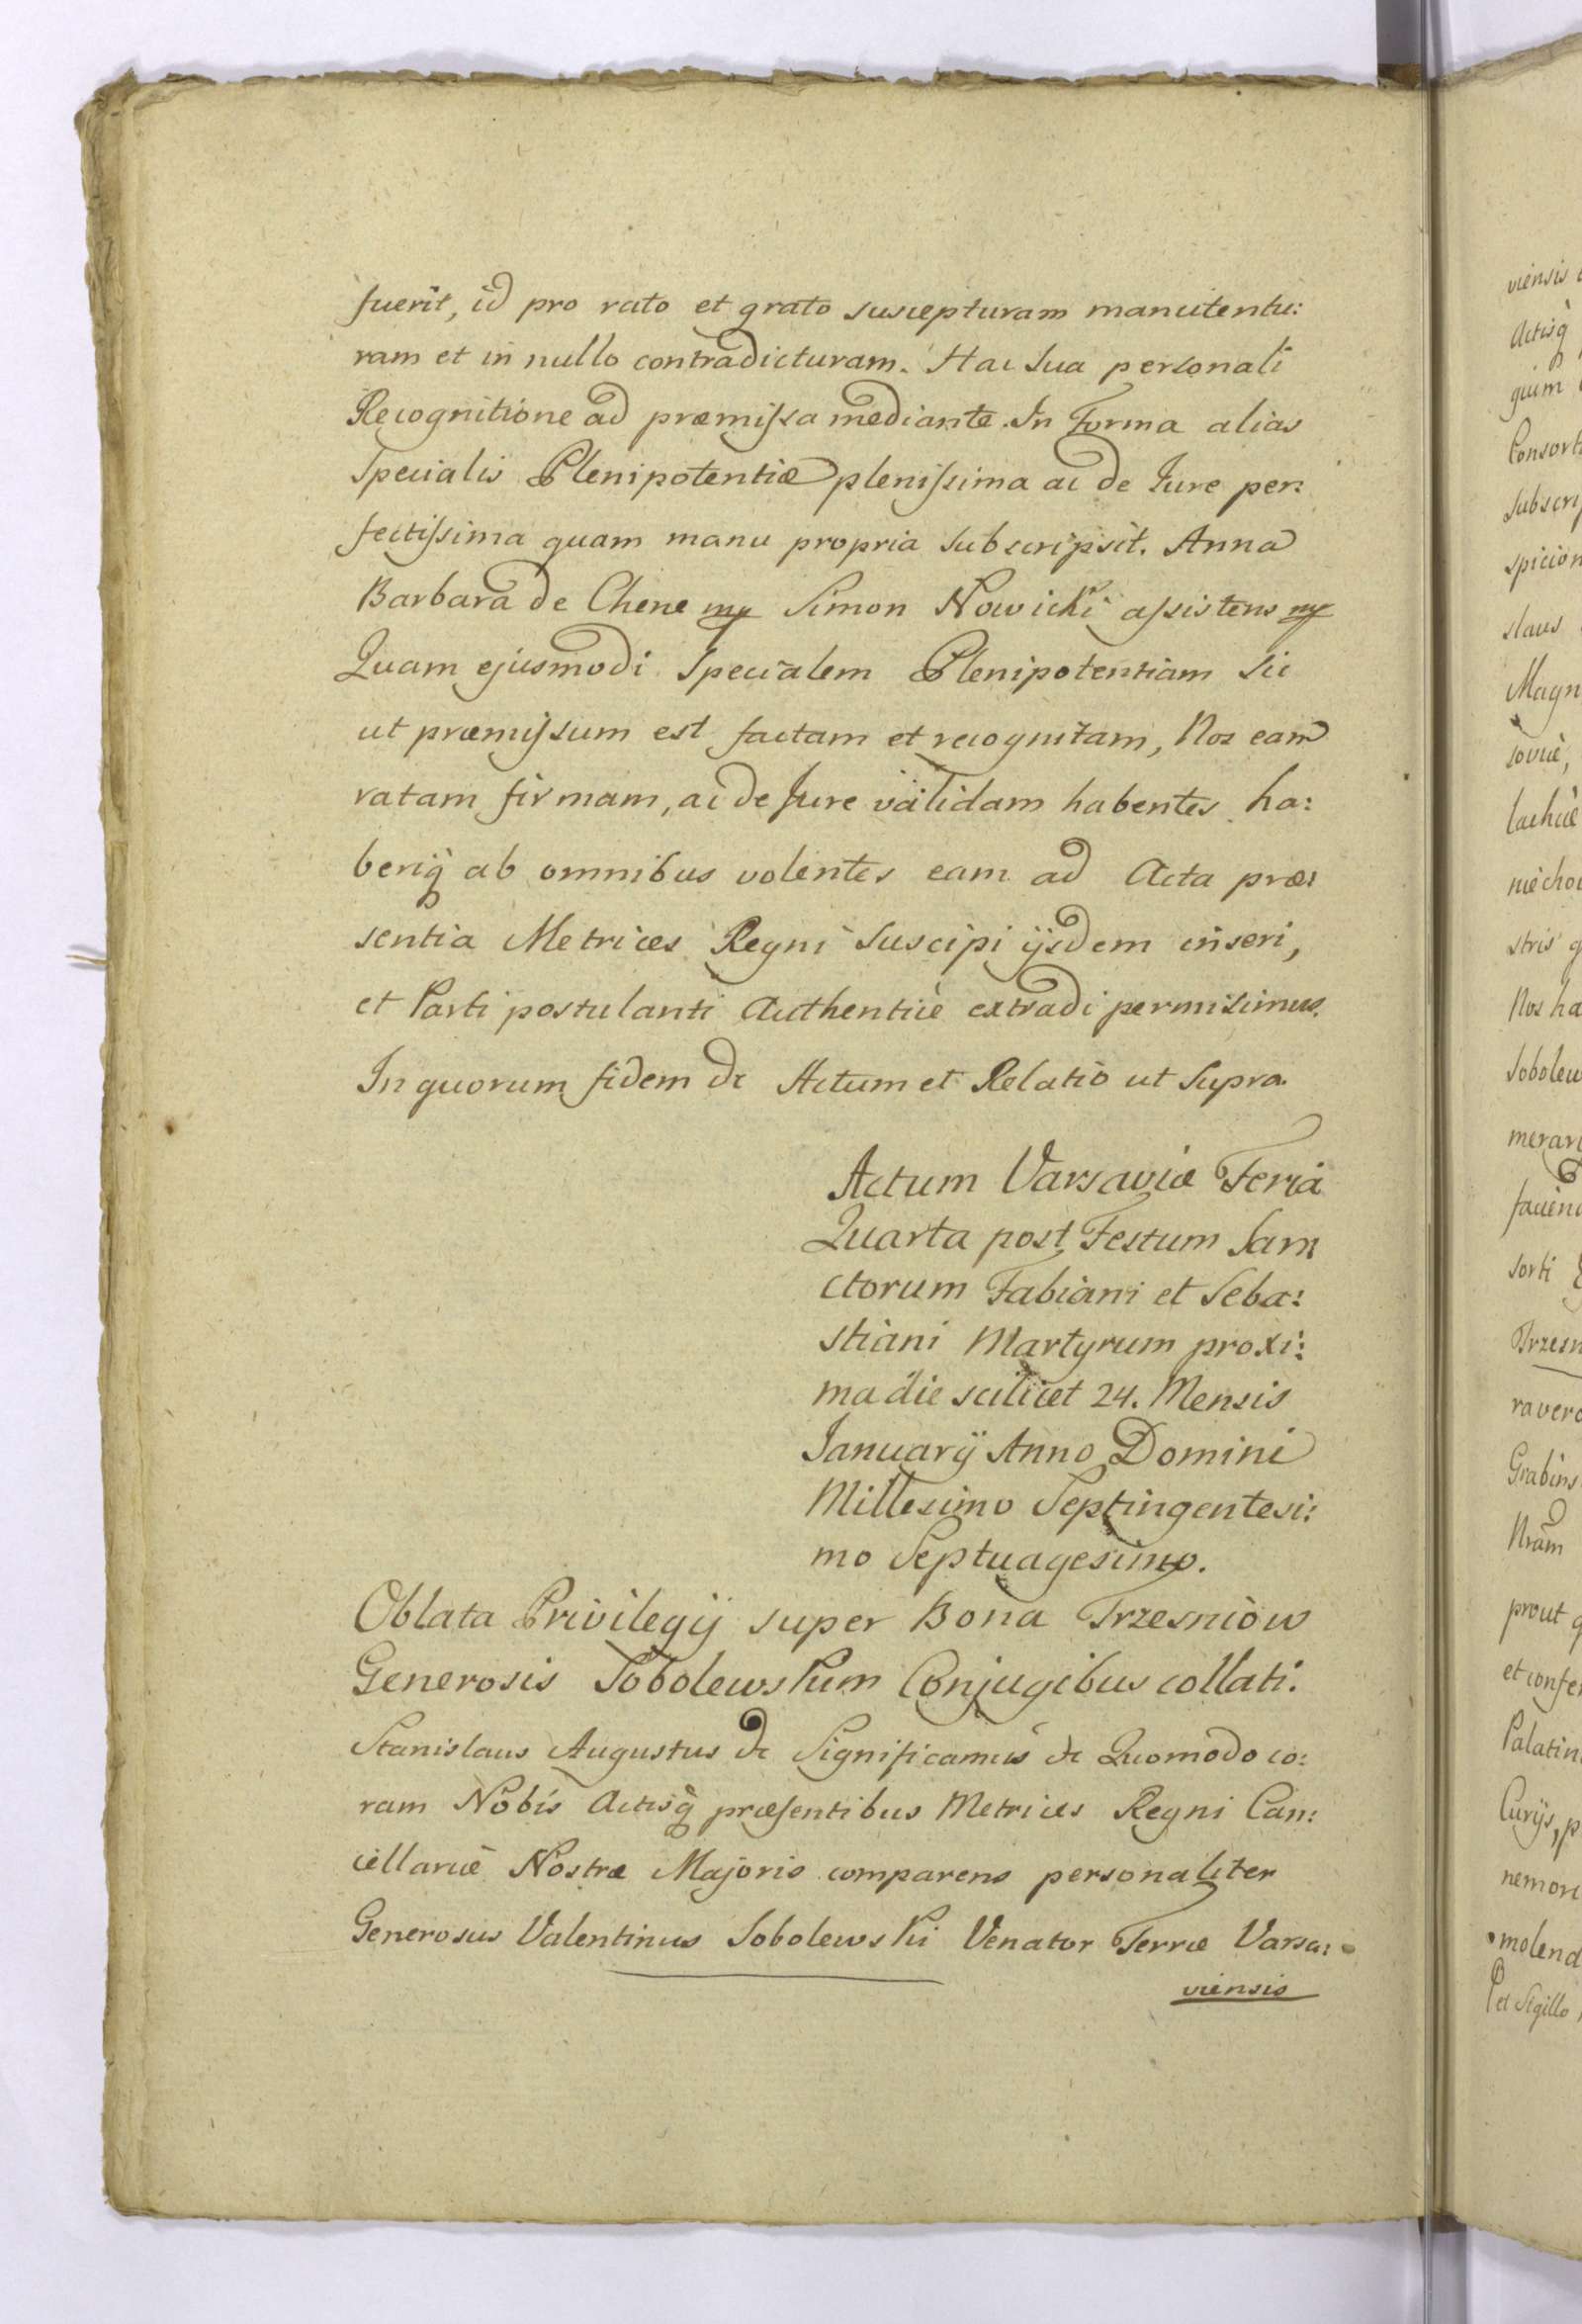 fuerit, id pro rato et grato suscepturam manutentu:
ram et in nullo contradicturam. Hac Sua personali
Recognitione ad præmissa mediante. In Forma alias
Specialis Plenipotentiæ plenissima ac de Jure per:
fectissima quam manu propria Subscripsit. Anna
Barbara de Chene mp Simon Nowicki assistens mp
Quam ejusmodi Specialem Plenipotentiam Sic
ut præmissum est factam et recognitam, Nos eam
ratam firmam, ac de Jure validam habentes ha:
beriq̀ ab omnibus volentes eam ad Acta præ:
sentia Metrices Regni Suscipi ijsdem inseri,
et Parti postulanti Authenticè extradi permisimus.
In quorum fidem &c Actum et Relatio ut Supra.
Actum Varsaviæ Feria
Quarta post Festum San
ctorum Fabiani et Seba:
stiani Martyrum proxi:
ma die scilicet 24. Mensis
Januarij Anno Domini
Millesimo Septingentesi:
mo Septuagesimo.
Oblata Privilegij super Bona Trzesniow
Generosis Sobolewskim Conjugibus collati.
Stanislaus Augustus &c Significamus &c Quomodo co:
ram Nobis Actisq̀ præsentibus Metrices Regni Can:
cellariæ Nostræ Majoris comparens personaliter
Generosus Valentinus Sobolewski Venator Terræ Varsa:
viensis
viensis
Actisq̀
guim
Consort
Subscrip
spicion
slaus
Magn
soviæ,
lachiæ
niechow
stris
Nos ha
Sobolew
merari
faciend
sorti
Trzesn
ravero
Grabins
Nram
prout
et confe
Palatin
Curijs, p
nemori
molend
et Sigillo